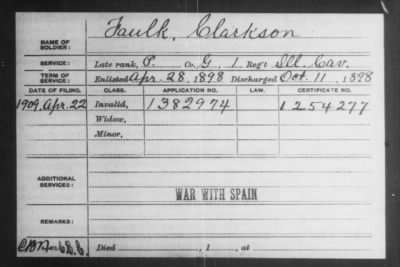 NAME OF SOLDIER: Faulk, Clarkson
SERVICE: Late rank, P. Co. G, 1 Reg't Ill. Cav.
TERM OF SERVICE: Enlisted Apr. 28, 1898 Discharged Oct. 11, 1898
DATE OF FILING. CLASS. APPLICATION NO. LAW. CERTIFICATE NO.
1909, Apr. 22 Invalid, 1382974 1254277
Widow,
Minor,
ADDITIONAL SERVICES:
WAR WITH SPAIN
REMARKS:
Died , 1 , at